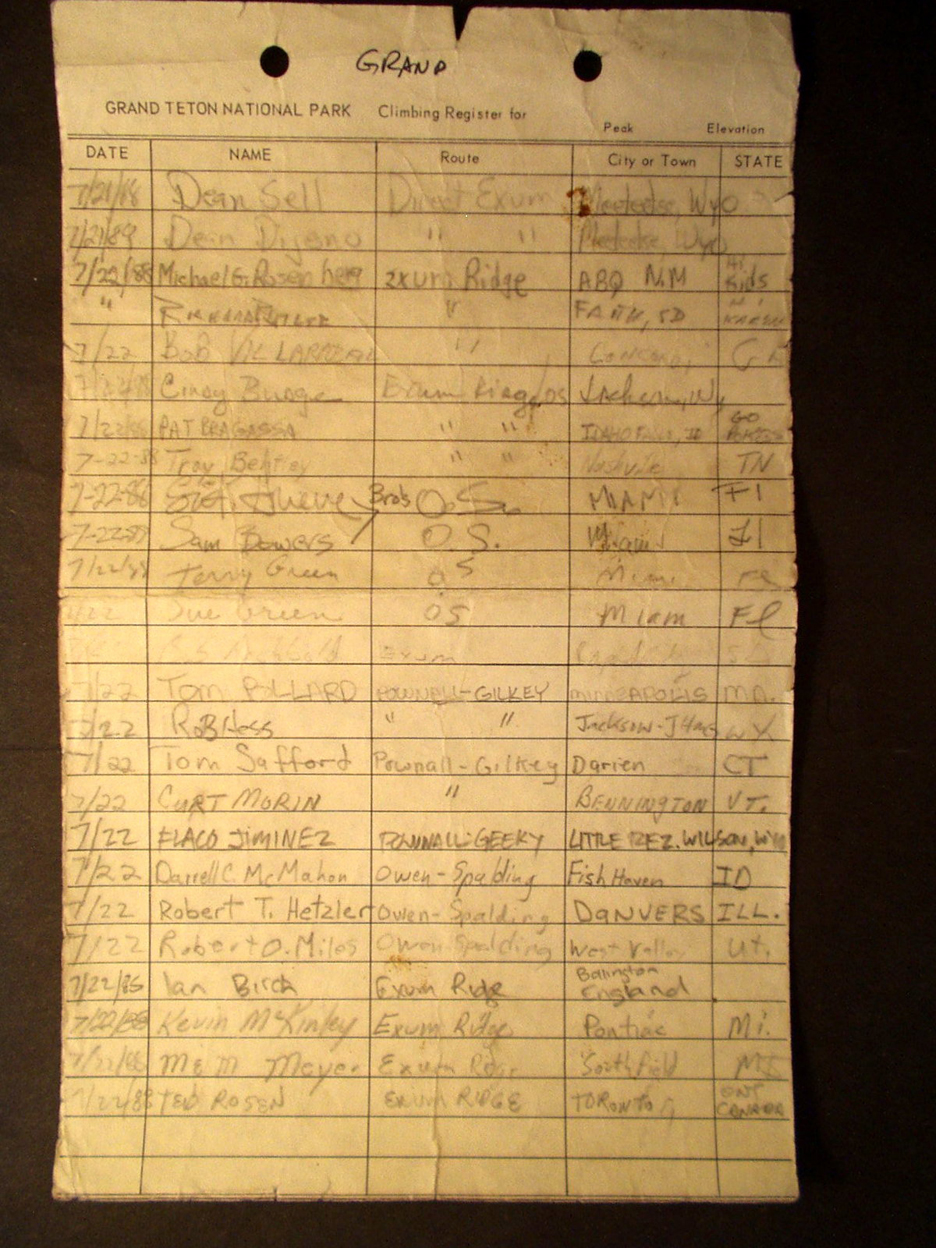 GRAND
GRAND TETON NATIONAL PARK Climbing Register for
Peak Elevation
DATE NAME Route City or Town STATE
Dean Sell Direct Exum Meeteetse, Wyo
7/21/88 Dean " " Meeteetse, Wyo
7/22/88 Michael G. Rosenberg Exum Ridge ABQ N.M Hi Kids
" " FAITH, SD
7/22 Bob " Concord,
Cindy Exum Jackson,
7/22/88 PAT BRAGASSA " " IDAHO FALLS, ID GO
7-22-88 Troy Bentley " " Nashville TN
7-22-88 Bros O.S. MIAMI Fl
7-22-88 Sam Bowers O.S. Miami Fl
7/22/88 Terry Green OS Miami
7/22 Sue Green OS Miam Fl
Archbold Exum
7/22 Tom POLLARD POWNALL-GILKEY MINNEAPOLIS MN.
7/22 Rob Hess " " Jackson WY
7/22 Tom Safford Pownall-Gilkey Darien CT
7/22 CURT MORIN " BENNINGTON VT.
7/22 FLACO JIMINEZ POWNALL-GEEKY LITTLE REZ. WILSON, WY
7/22 Darrell C. McMahon Owen-Spalding Fish Haven ID
7/22 Robert T. Hetzler Owen-Spalding DANVERS ILL.
7/22 Robert O. Miles Owen-Spalding West Valley Ut.
Ian Birch Exum Ridge England
7/22/88 Kevin McKinley Exum Ridge Pontiac Mi.
7/22/88 Meyer Exum Ridge Southfield MI
7/22/88 TED ROSEN EXUM RIDGE TORONTO ONT CANADA